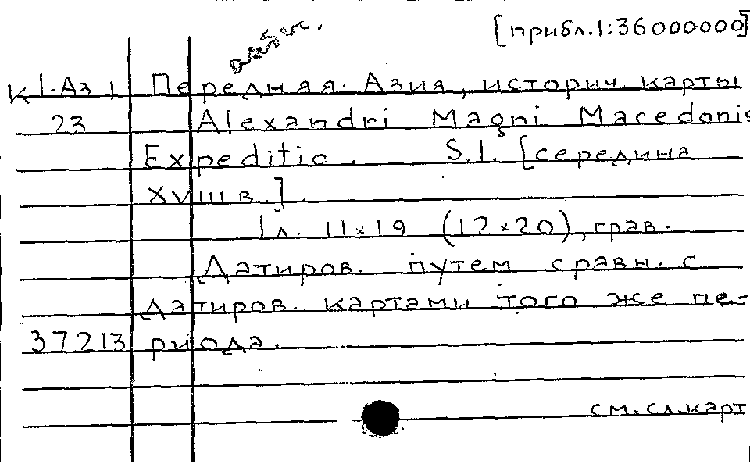 [прибл.1:36000000]
К 1-Аз 1 Передняя Азия, историч. карты
23 Alexandri Magni Macedonis
Expeditio. S.l. [середина
XVIII в.].
1 л. 11×19 (12×20), грав.
Датиров. путем сравн. с
датиров. картами того же пе-
37213 риода.
см. сл. карт